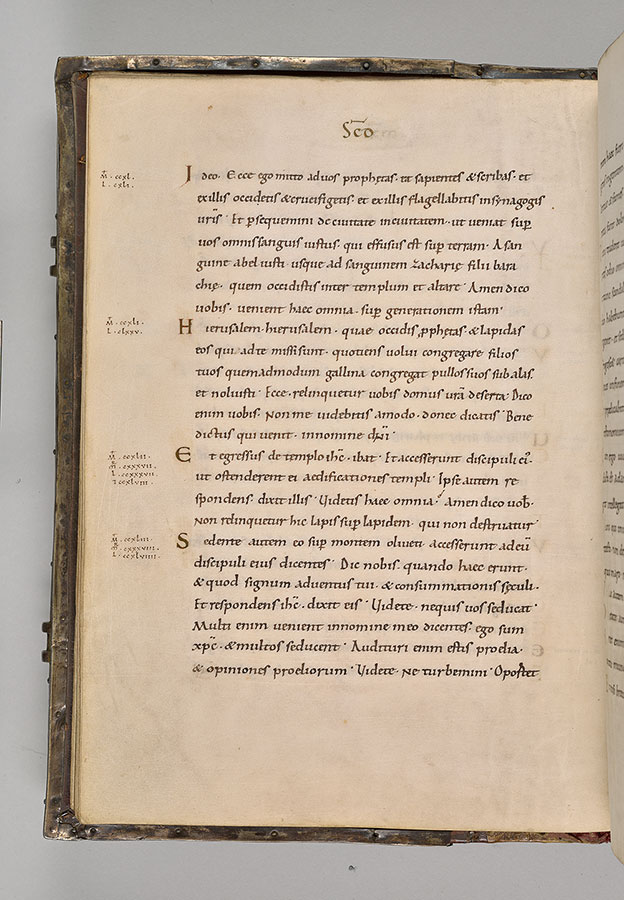 Sc̄o
M̄· ccxl·
L· cxli·
Ideo· Ecce ego mitto aduos prophetas· et sapientes &scribas· et
exillis occidetis &crucifigetis· et exillis flagellabitis insynagogis
uris̄· Et psequemini de ciuitate inciuitatem· ut ueniat sup̄
uos omnissanguis iustus· qui effusus est sup̄ terram· A san
guine abel iusti· usque ad sanguinem zacharię filii bara
chię· quem occidistis inter templum et altare· Amen dico
uobis· uenient haec omnia· sup̄ generationem istam·
M̄· ccxli·
L· clxxv·
Hierusalem· hierusalem· quae occidis pphetas· &lapidas
eos qui adte missisunt· quotiens uolui congregare filios
tuos quemadmodum gallina congregat pullossuos subalas·
et noluisti· Ecce· relinquetur uobis domus urā deserta· Dico
enim uobis· Non me uidebitis amodo· donec dicatis· Bene
dictus qui uenit· innomine dn̄i·
M̄· ccxlii·
M̄· cxxxvii·
L· ccxxxvii·
I· ccxlviii·
Et egressus de templo ihc̄· ibat· Et accesserunt discipuli ei᷒·
ut ostenderent ei aedificationes templi· Ipse autem re
spondens· dixit illis· Uidetis haec omnia? Amen dico uob̄·
Non relinquetur hic lapis sup̄ lapidem· qui non destruatur·
M̄· ccxliii·
M̄· cxxxviii·
L· ccxlviiii·
Sedente autem eo sup̄ montem oliueti· accesserunt adeū
discipuli eius dicentes· Dic nobis· quando haec erunt·
&quod signum aduentus tui· &consummationis sęculi·
Et respondens ihc̄· dixit eis· Uidete· nequis uos seducat·
Multi enim uenient innomine meo dicentes· ego sum
xpc̄· &multos seducent· Audituri enim estis proelia·
&opiniones proeliorum· Uidete· Ne turbemini· Oportet